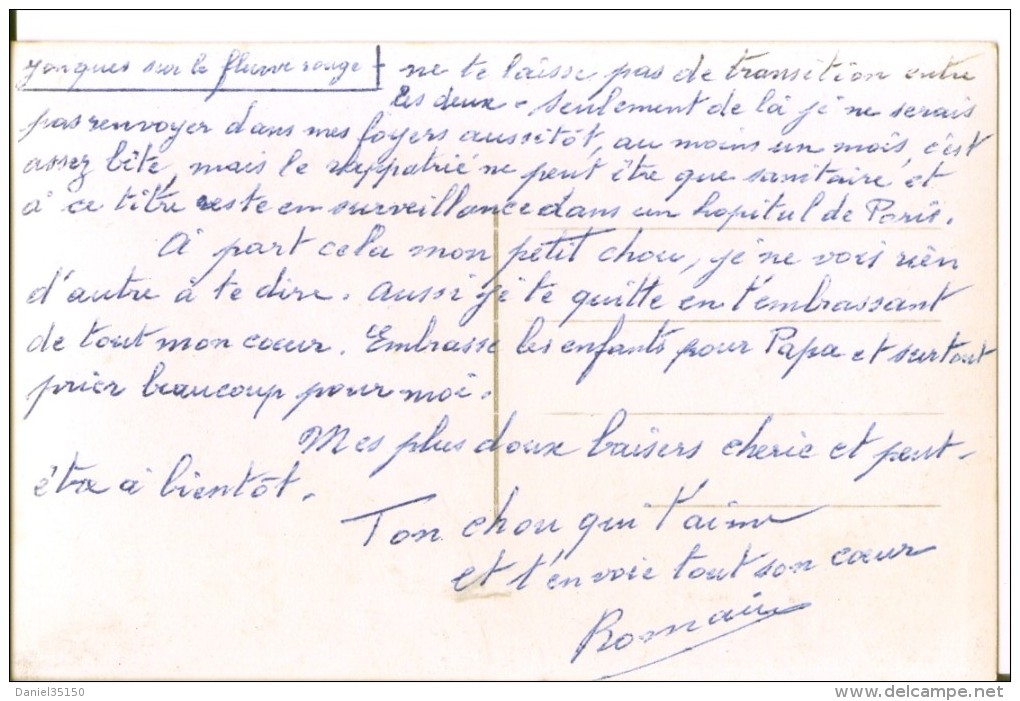 Jonques sur le fleuve rouge
ne te laisse pas de transition entre
les deux. Seulement de là je ne serais
pas renvoyer dans mes foyers aussitôt, au moins un mois, c'est
assez bête, mais le rappatrié ne peut être que sanitaire et
à ce titre reste en surveillance dans un hopital de Paris.
A part cela mon petit chou, je ne vois rien
d'autre à te dire. Aussi je te quitte en t'embrassant
de tout mon coeur. Embrasse les enfants pour Papa et surtout
prier beaucoup pour moi.
Mes plus doux baisers cherie et peut-
être à bientôt.
Ton chou qui t'aime
et t'envoie tout son coeur
Romain
Daniel35150
www.delcampe.net